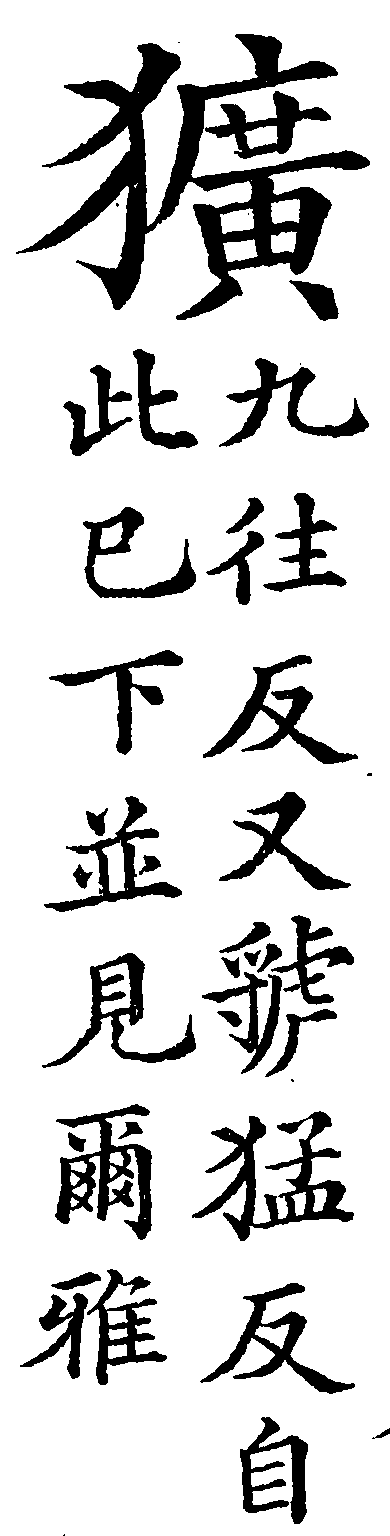 獷
九往反又虢猛反自
此已下並見爾雅